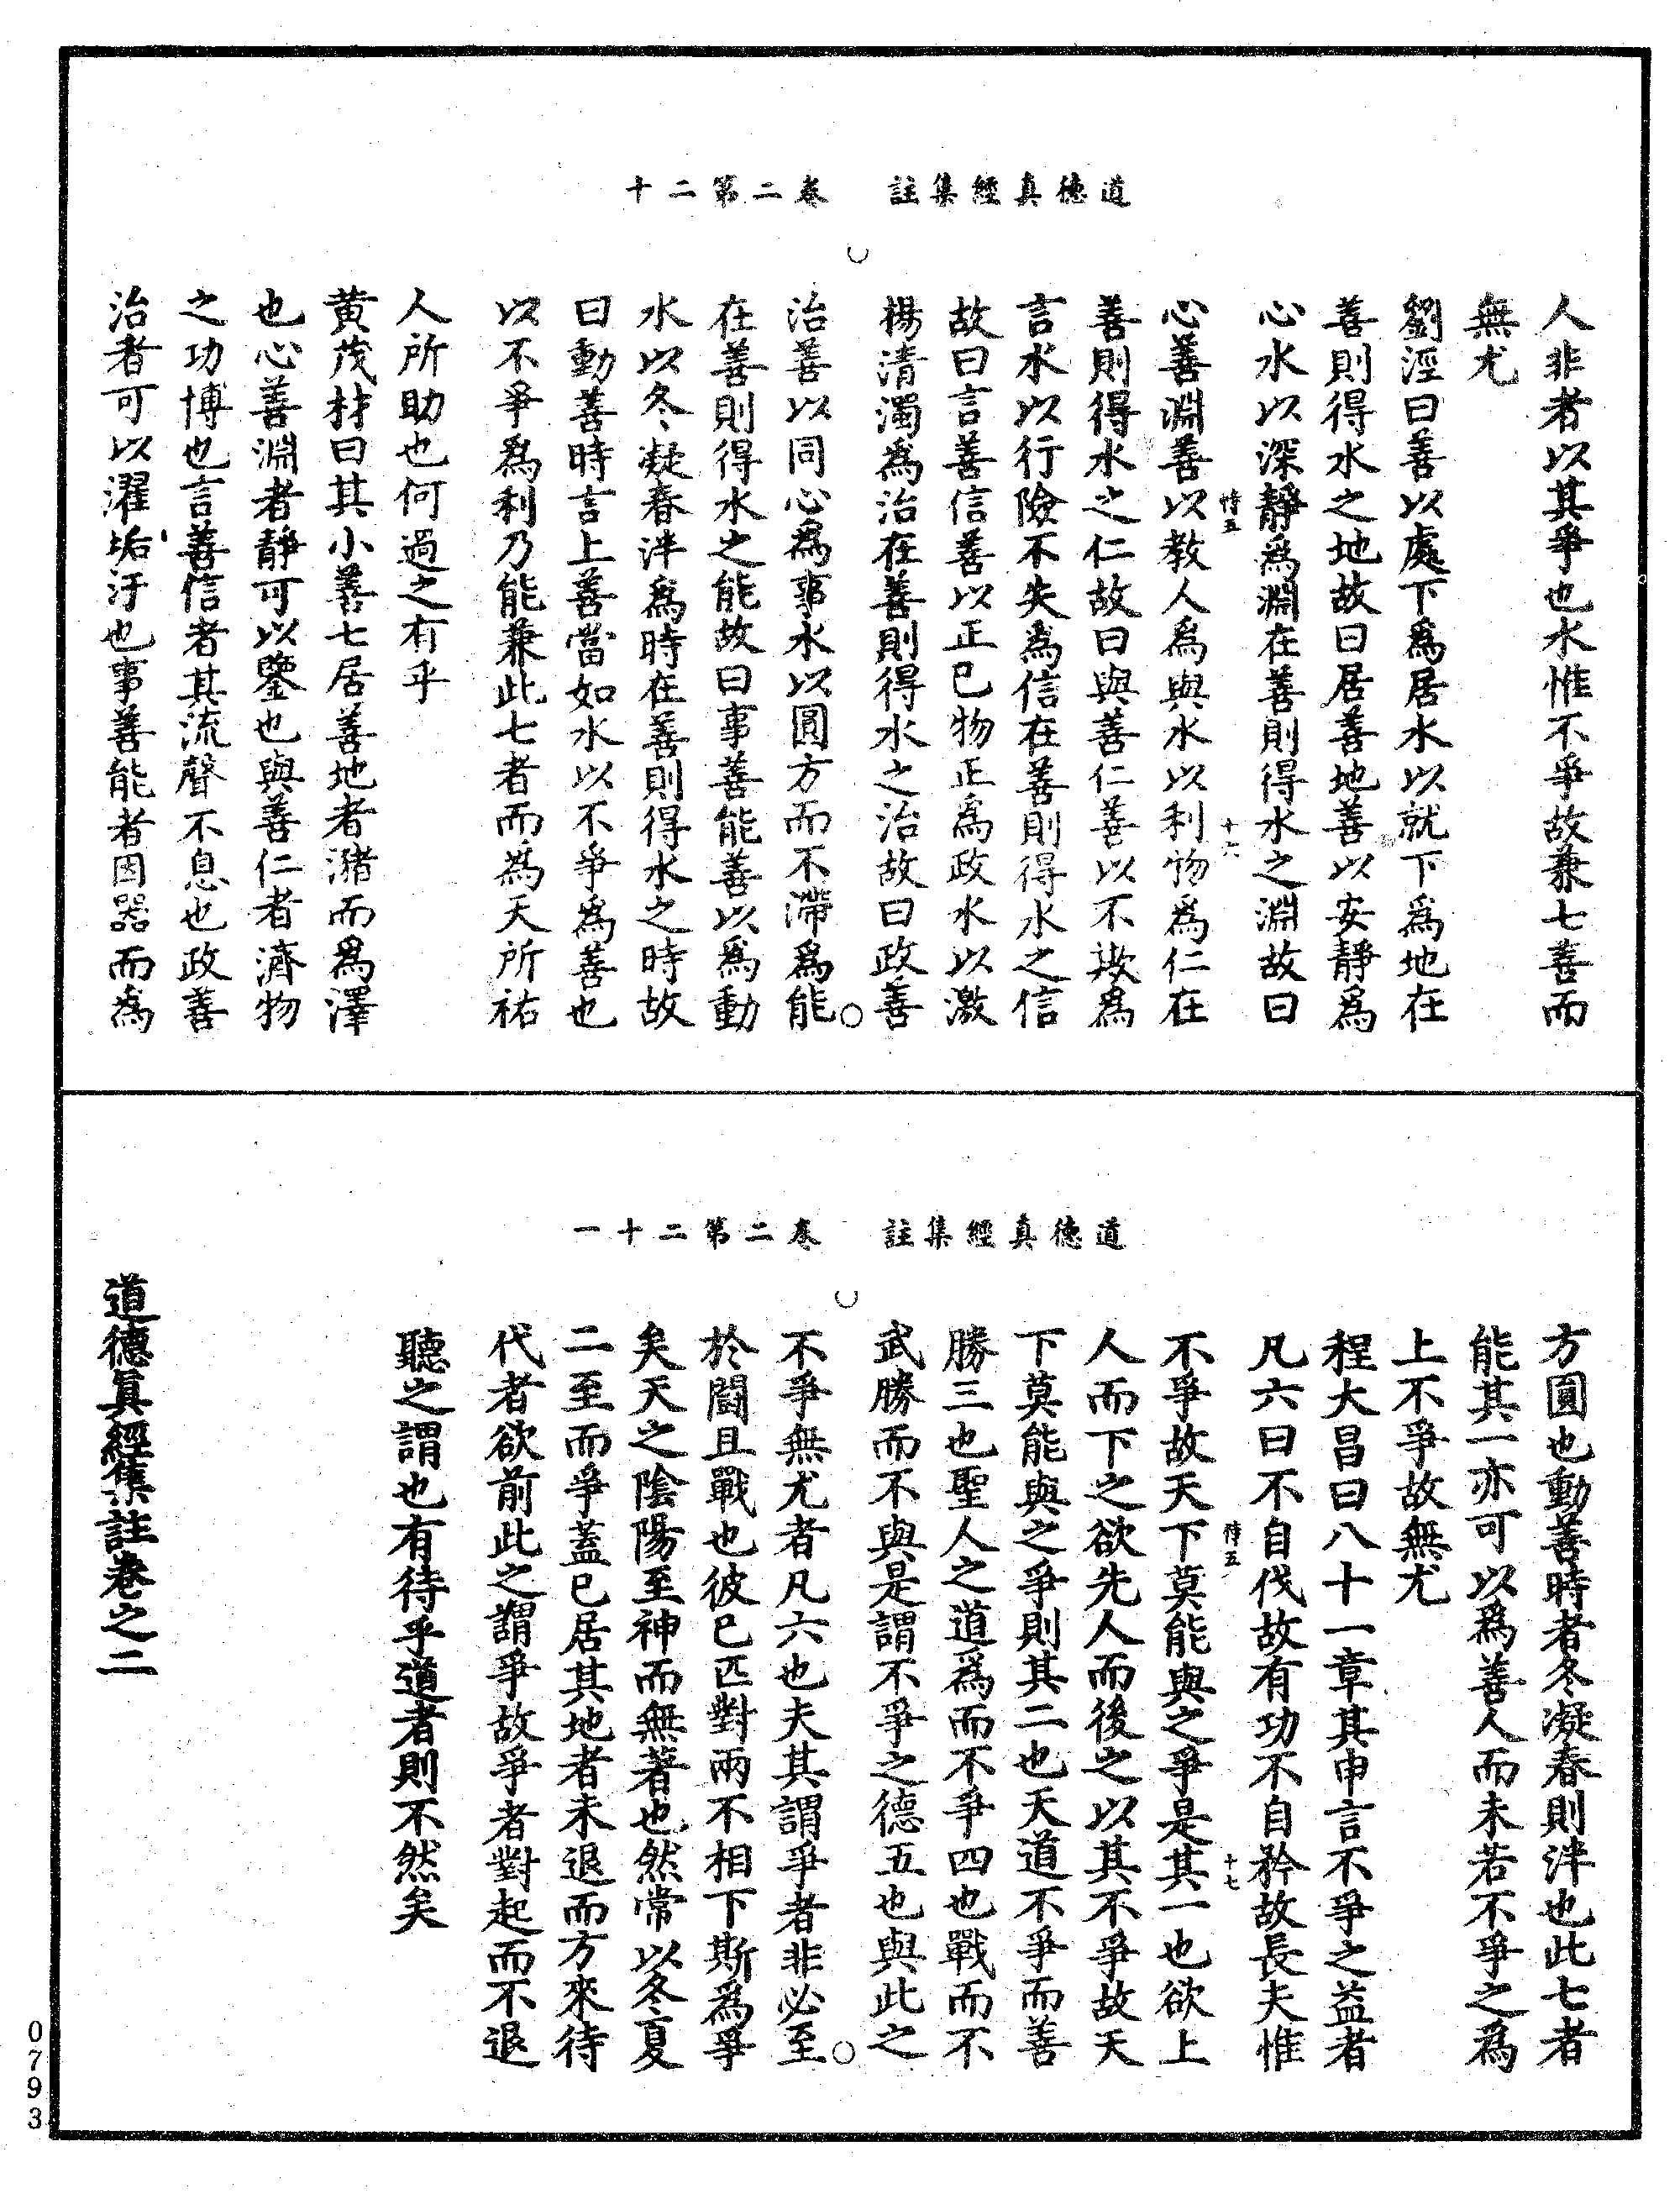 道德真經集註　卷二第二十
人非者以其爭也水惟不爭故兼七善而
無尤
劉涇曰善以處下爲居水以就下爲地在
善則得水之地故曰居善地善以安靜爲
心水以深靜爲淵在善則得水之淵故曰
心善淵善以教人爲與水以利物爲仁在
善則得水之仁故曰與善仁善以不欺爲
言水以行險不失爲信在善則得水之信
故曰言善信善以正己物正爲政水以激
楊清濁爲治在善則得水之治故曰政善
治善以同心爲事水以圓方而不滯爲能
在善則得水之能故曰事善能善以爲動
水以冬凝春泮爲時在善則得水之時故
曰動善時言上善當如水以不爭爲善也
以不爭爲利乃能兼此七者而爲天所祐
人所助也何過之有乎
黄茂材曰其小善七居善地者瀦而爲澤
也心善淵者靜可以鑒也與善仁者濟物
之功博也言善信者其流聲不息也政善
治者可以濯垢汙也事善能者因器而爲
十六
道德真經集註　卷二第二十一
方圓也動善時者冬凝春則泮也此七者
能其一亦可以爲善人而未若不爭之爲
上不爭故無尤
程大昌曰八十一章其申言不爭之益者
凡六曰不自伐故有功不自矜故長夫惟
不爭故天下莫能與之爭是其一也欲上
人而下之欲先人而後之以其不爭故天
下莫能與之爭則其二也天道不爭而善
勝三也聖人之道爲而不爭四也戰而不
武勝而不與是謂不爭之德五也與此之
不爭無尤者凡六也夫其謂爭者非必至
於鬪且戰也彼已匹對兩不相下斯爲爭
矣天之陰陽至神而無著也然常以冬夏
二至而爭蓋已居其地者未退而方來待
代者欲前此之謂爭故爭者對起而不退
聽之謂也有待乎道者則不然矣
十七
道德真經集註卷之二
0793